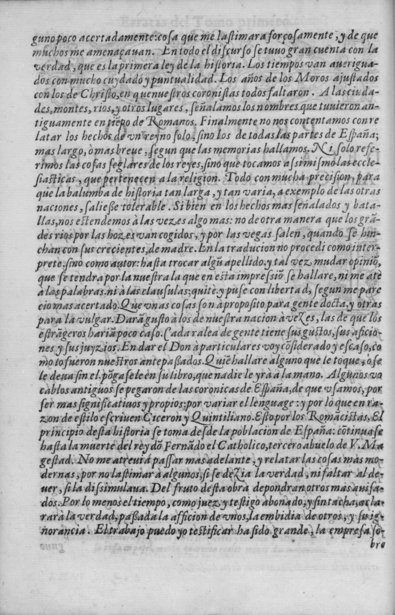 guno poco acertadamente: cosa que me lastimara forçosamente, y de que
muchos me amenaçauan. En todo el discurso se tuuo gran cuenta con la
verdad, que es la primera ley de la historia. Los tiempos van auerigua
dos con mucho cuydado y puntualidad. Los años de los Moros ajustados
con los de Christo, en que nuestros coronistas todos faltaron. A las ciuda
des, montes, rios, y otros lugares, señalamos los nombres que tuuieron an
tiguamente en tiēpo de Romanos. Finalmente no nos contentamos con re
latar los hechos de vn reyno solo, sino los de todas las partes de España;
mas largo, ò mas breue, segun que las memorias hallamos. Ni solo refe-
rimos las cosas seglares de los reyes, sino que tocamos assimismo las eccle-
siasticas, que pertenecen a la religion. Todo con mucha precision, para
que la balumba de historia tan larga, y tan varia, a exemplo de las otras
naciones, saliesse tolerable. Si bien en los hechos mas señalados y bata-
llas, nos estendemos à las vezes algo mas: no de otra manera que los grā-
des rios por las hozes van cogidos, y por las vegas salen, quando se hin-
chan con sus crecientes, de madre. En la traducion no procedi como inter-
prete, sino como autor: hasta trocar algū apellido, y tal vez mudar opiniō,
que se tendra por la nuestra la que en esta impressiō se hallare, ni me atè
à las palabras, ni à las clausulas: quitè, y puse con libertad, segun me pare
cio mas acertado. Que vnas cosas son à proposito para gente docta, y otras
para la vulgar. Darā gusto à los de nuestra nacion à vezes, las de que los
estrāgeros hariā poco caso. Cada ralea de gente tiene sus gustos, sus aficio-
nes y sus juyzios. En dar el Don à particulares voy cōsiderado y escaso, co
mo lo fueron nuestros antepassados. Quiē hallare alguno que le toque, ò se
le deua sin el, pōgasele en su libro, que nadie le yrà à la mano. Algunos vo
cablos antiguos se pegaron de las coronicas de España, de que vsamos, por
ser mas significatiuos y propios; por variar el lenguage: y por lo que en ra
zon de estilo escriuen Ciceron y Quintiliano. Esto por los Romācistas. El
principio desta historia se toma desde la poblacion de España: cōtinuase
hasta la muerte del rey dō Fernādo el Catholico, tercero abuelo de V. Ma
gestad. No me atreui à passar mas adelante, y relatar las cosas mas mo-
dernas, por no lastimar à algunos, si se dezia la verdad, ni faltar al de-
uer, si la dissimulaua. Del fruto desta obra depondran otros mas auisa-
dos. Por lo menos el tiempo, como juez y testigo abonado, y sin tacha, acla
rarà la verdad, passada la aficion de vnos, la embidia de otros, y su ig-
norancia. El trabajo puedo yo testificar ha sido grande, la empresa so-
bre